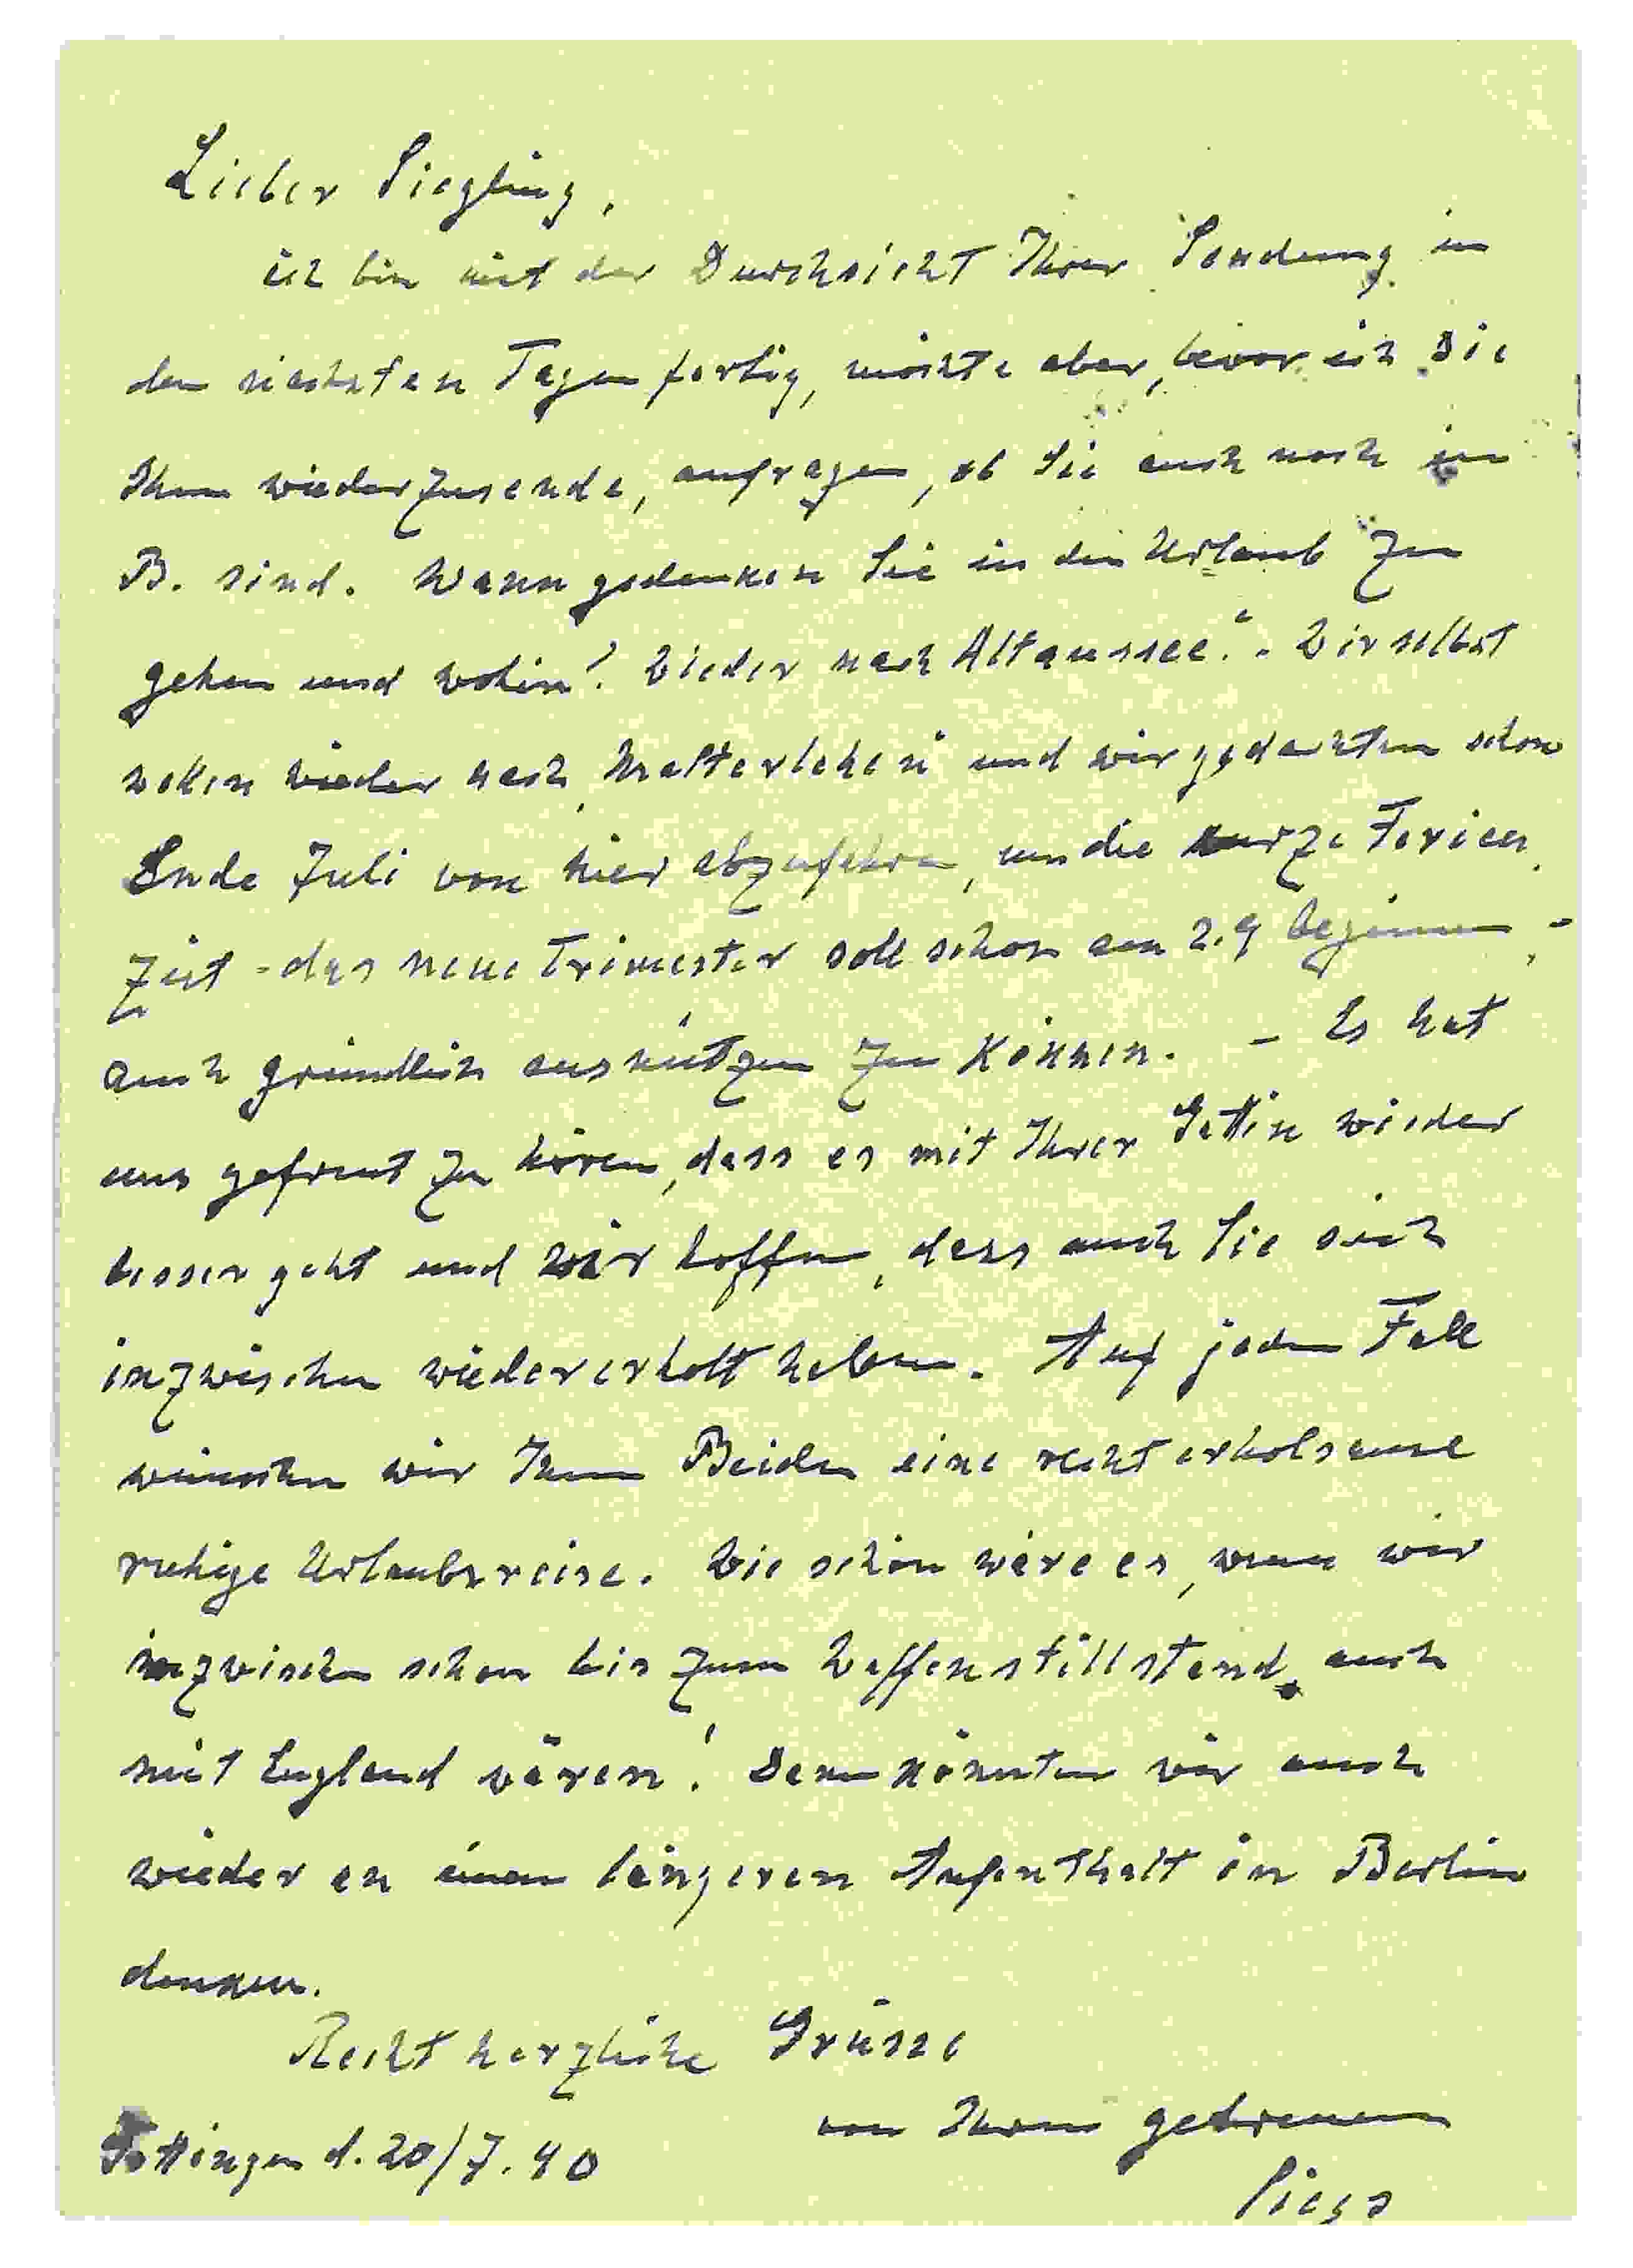 Lieber Siegling,
ich bin mit der Durchsicht Ihrer Sendung in
den nächsten Tagen fertig, möchte aber, bevor ich sie
Ihnen wiederzusende, anfragen, ob Sie auch noch in
B. sind. Wann gedenken Sie in den Urlaub zu
gehen und wohin? Wieder nach Altaussee? - Wir selbst
wollen wieder nach und wir gedachten schon
Ende Juli von hier abzufahren, um die kurze Ferien
zeit - das neue Trimester soll schon am 2.9 beginnen, -
auch gründlich ausnützen zu können. - Es hat
uns gefreut zu hören, dass es mit Ihrer Gattin wieder
besser geht und wir hoffen, dass auch Sie sich
inzwischen wieder erholt haben. Auf jeden Fall
wünschen wir Ihnen Beiden eine recht erholsame
ruhige Urlaubsreise. Wie schön wäre es, wenn wir
inzwischen schon bis zum Waffenstillstand auch
mit England wären! Dann könnten wir auch
wieder an einen längeren Aufenthalt in Berlin
denken.
Recht herzliche Grüsse
von Ihrem getreuen
Göttingen d. 20/7. 40
Siegs